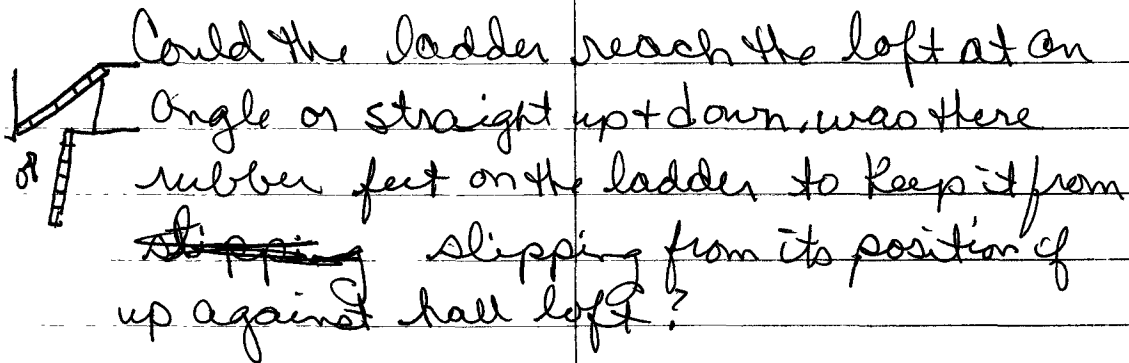 Could the ladder reach the loft at an
angle or straight up + down. was there
or rubber feet on the ladder to keep it from
slipping from its position if
up against hall loft?